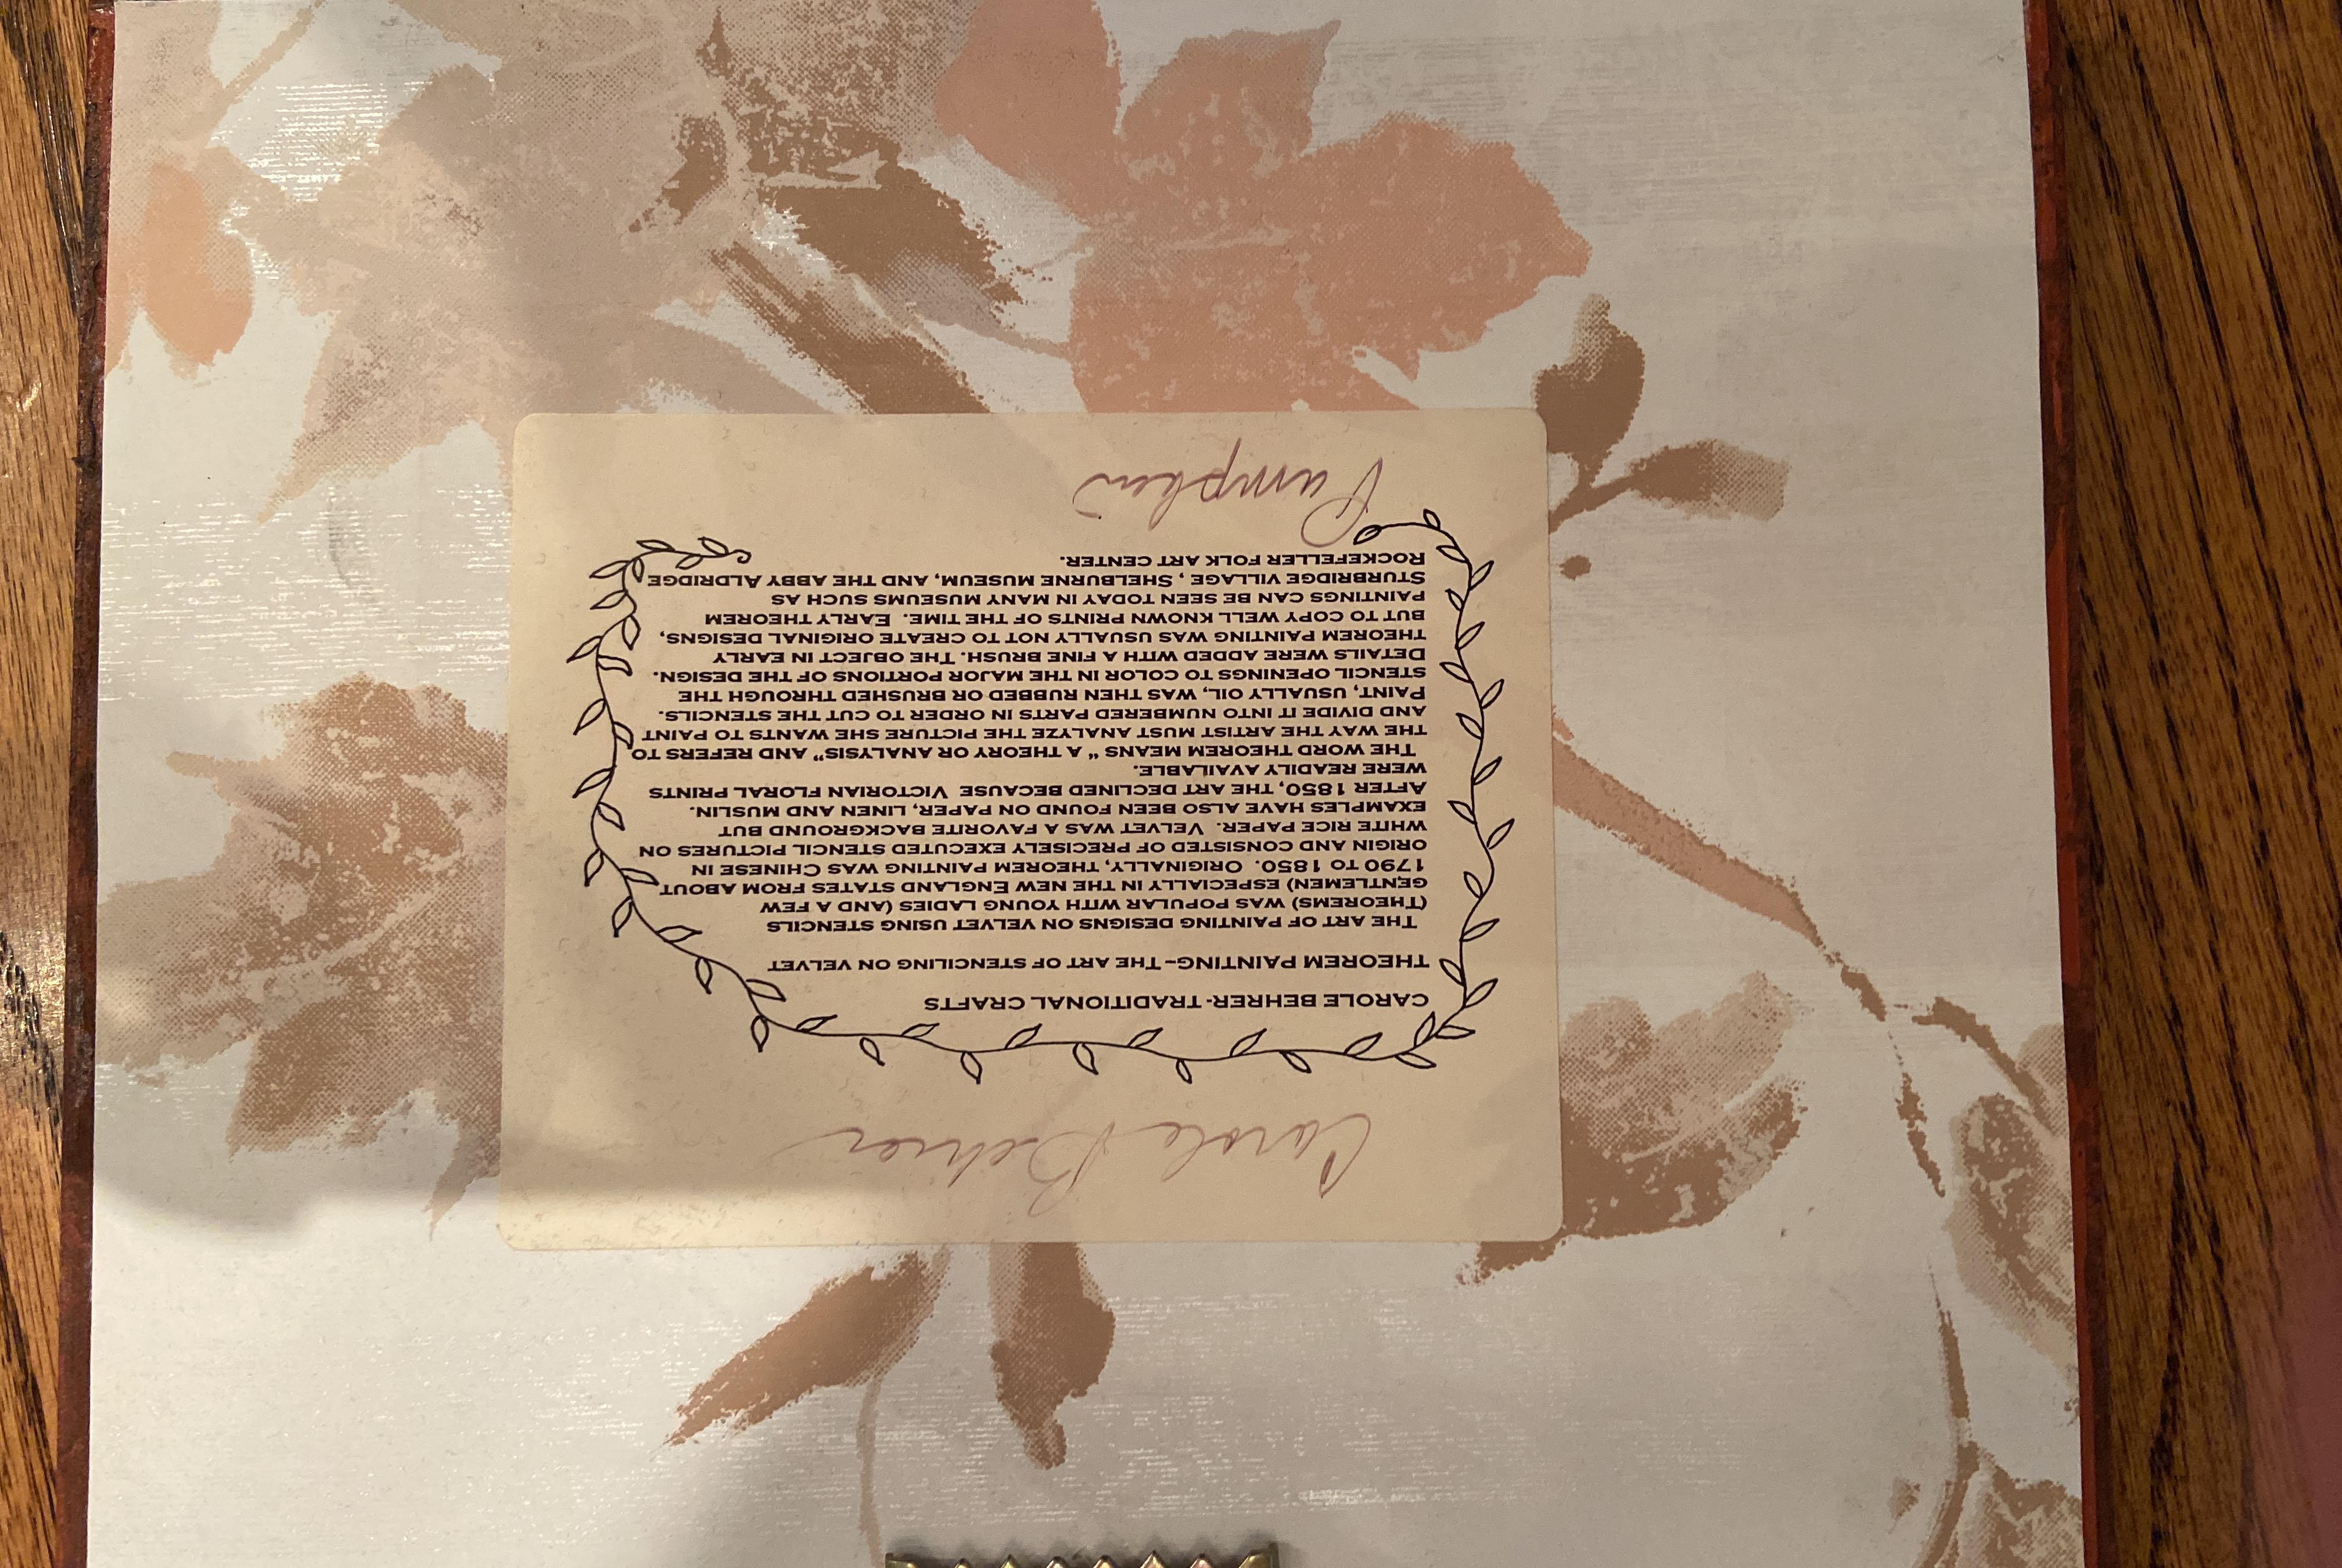 Carole Behrer
CAROLE BEHRER-TRADITIONAL CRAFTS
THEOREM PAINTING-THE ART OF STENCILING ON VELVET
THE ART OF PAINTING DESIGNS ON VELVET USING STENCILS
(THEOREMS) WAS POPULAR WITH YOUNG LADIES (AND A FEW
GENTLEMEN) ESPECIALLY IN THE NEW ENGLAND STATES FROM ABOUT
1790 TO 1850. ORIGINALLY, THEOREM PAINTING WAS CHINESE IN
ORIGIN AND CONSISTED OF PRECISELY EXECUTED STENCIL PICTURES ON
WHITE RICE PAPER. VELVET WAS A FAVORITE BACKGROUND BUT
EXAMPLES HAVE ALSO BEEN FOUND ON PAPER, LINEN AND MUSLIN.
AFTER 1850, THE ART DECLINED BECAUSE VICTORIAN FLORAL PRINTS
WERE READILY AVAILABLE.
THE WORD THEOREM MEANS " A THEORY OR ANALYSIS" AND REFERS TO
THE WAY THE ARTIST MUST ANALYZE THE PICTURE SHE WANTS TO PAINT
AND DIVIDE IT INTO NUMBERED PARTS IN ORDER TO CUT THE STENCILS.
PAINT, USUALLY OIL, WAS THEN RUBBED OR BRUSHED THROUGH THE
STENCIL OPENINGS TO COLOR IN THE MAJOR PORTIONS OF THE DESIGN.
DETAILS WERE ADDED WITH A FINE BRUSH. THE OBJECT IN EARLY
THEOREM PAINTING WAS USUALLY NOT TO CREATE ORIGINAL DESIGNS,
BUT TO COPY WELL KNOWN PRINTS OF THE TIME. EARLY THEOREM
PAINTINGS CAN BE SEEN TODAY IN MANY MUSEUMS SUCH AS
STURBRIDGE VILLAGE , SHELBURNE MUSEUM, AND THE ABBY ALDRIDGE
ROCKEFELLER FOLK ART CENTER.
Pumpkin